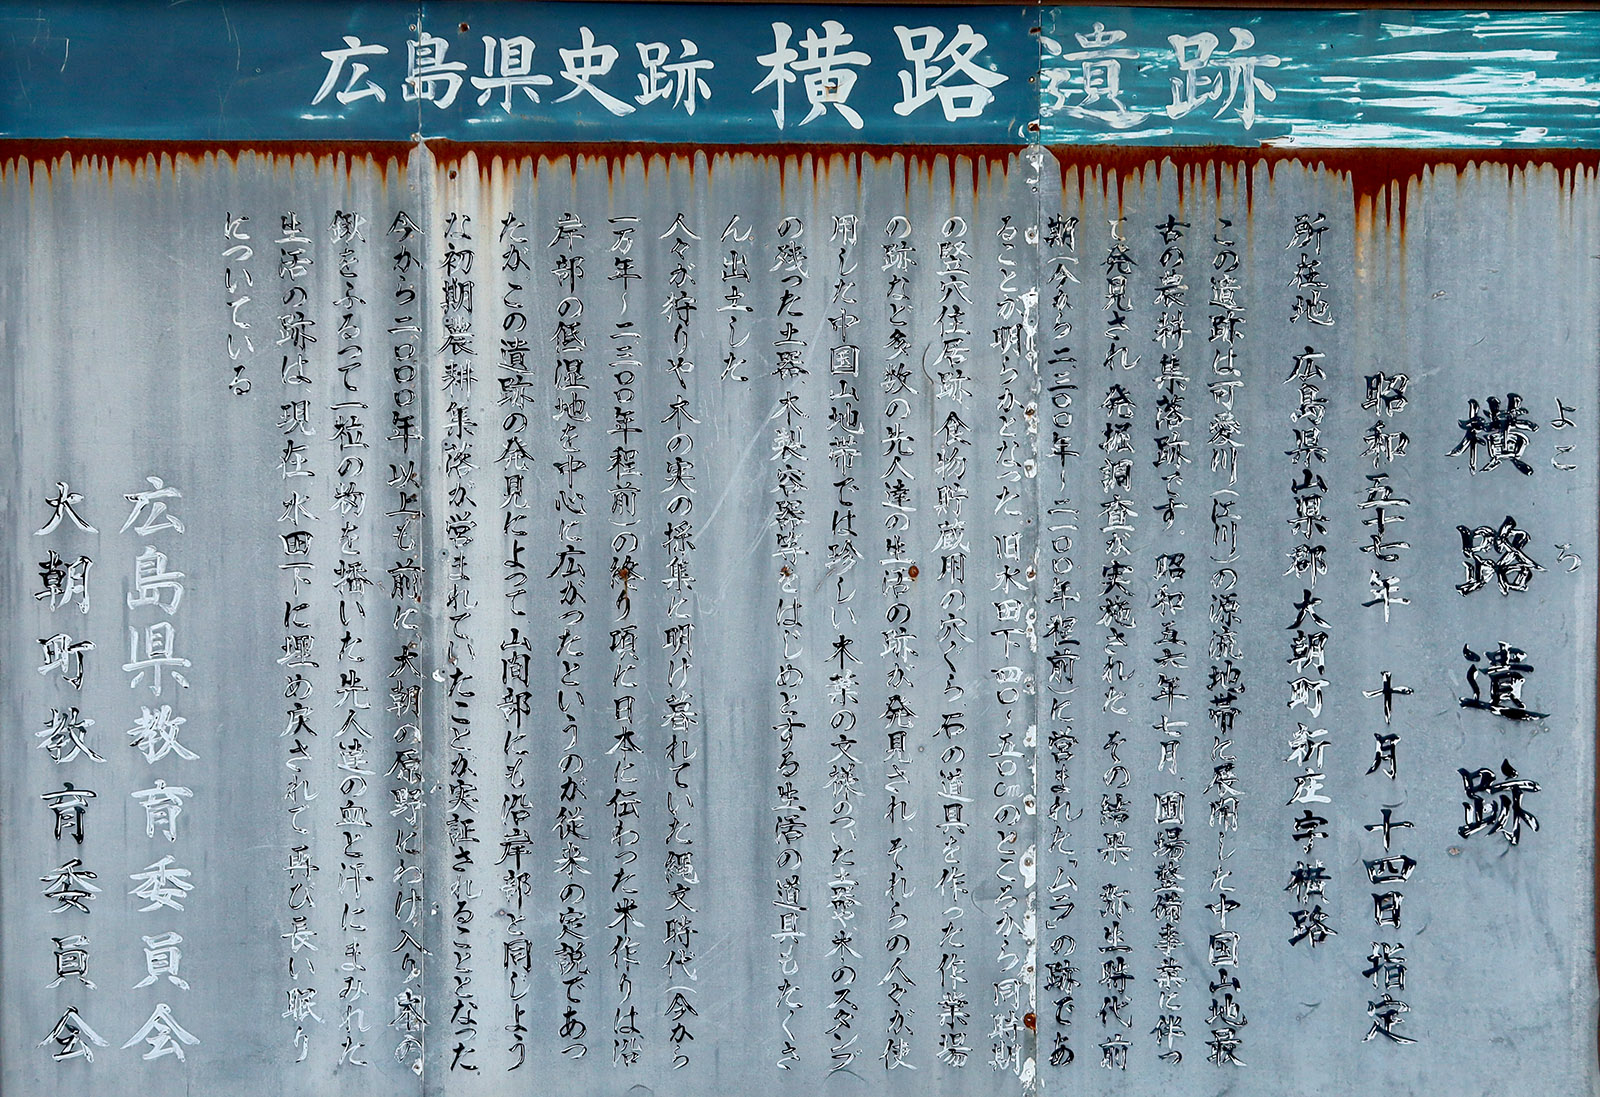 広島県史跡 横路遺跡
よころ
横路遺跡
昭和五十七年 十月 十四日指定
所在地 広島県山県郡大朝町新庄字横路
この遺跡は可愛川(江川)の源流地帯に展開した中国山地最
古の農耕集落跡です。昭和五六年七月、圃場整備事業に伴っ
て発見され 発掘調査が実施された。その結果、弥生時代前
期(今から二三〇〇年〜二一〇〇年程前)に営まれた「ムラ」の跡であ
ることが明らかとなった。旧水田下四〇〜五〇cmのところから、同時期
の竪穴住居跡 食物貯蔵用の穴ぐら、石の道具を作った作業場
の跡など多数の先人達の生活の跡が発見され、それらの人々が使
用した中国山地帯では珍しい木葉の文様のついた土器や木のスタンプ
の残った土器、木製容器等をはじめとする生活の道具もたくさ
ん出土した。
人々が狩りや木の実の採集に明け暮れていた縄文時代(今から
一万年〜二三〇〇年程前)の終り頃に日本に伝わった米作りは沿
岸部の低湿地を中心に広がったというのが従来の定説であっ
たが この遺跡の発見によって 山間部にも沿岸部と同じよう
な初期農耕集落が営まれていたことが実証されることとなった
今から二〇〇〇年以上も前に、大朝の原野にわけ入り、木の
鍬をふるって一粒の籾を播いた先人達の血と汗にまみれた
生活の跡は現在 水田下に埋め戻されて 再び長い眠り
についている
広島県教育委員会
大朝町教育委員会